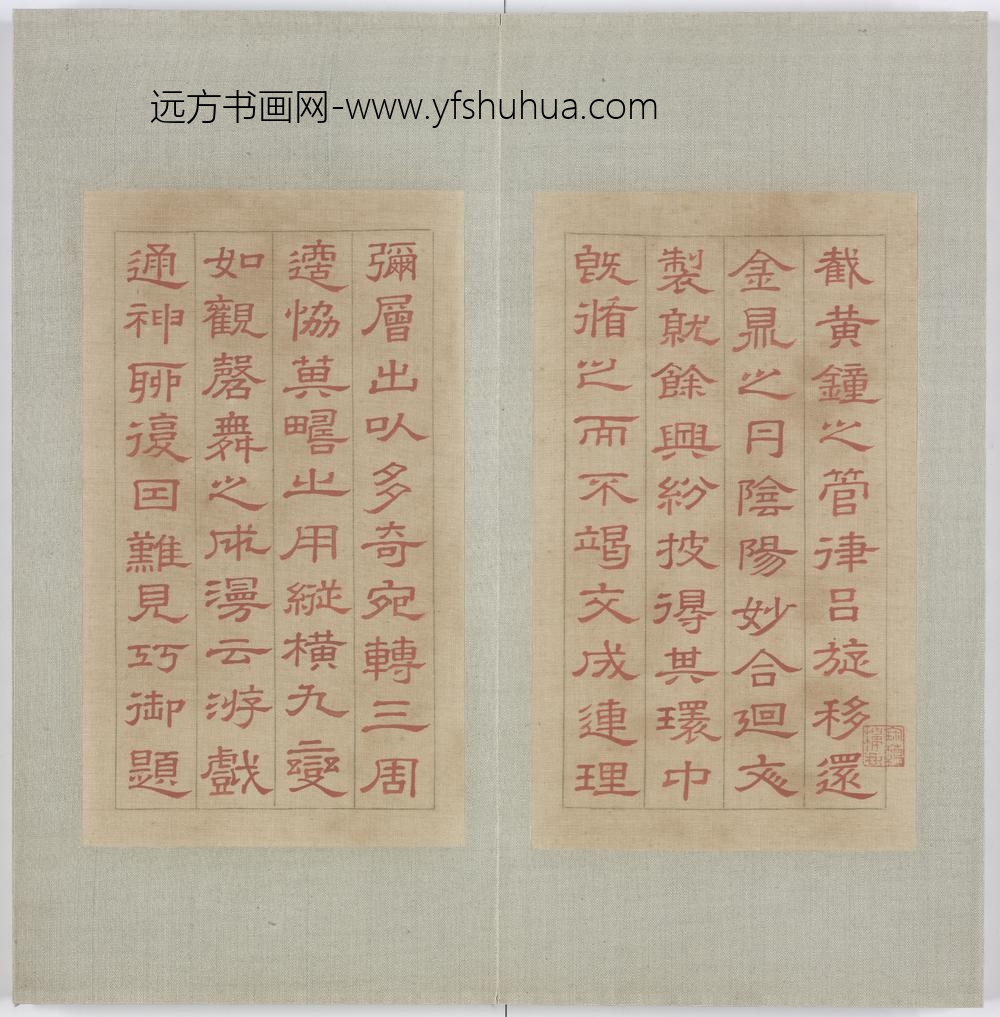 远方书画网-www.yfshuhua.com
截黃鐘之管律呂旋移還
金鼎之丹陰陽妙合迴文
製就餘興紛披得其環中
既循之而不竭文成連理
彌層出以多奇宛轉三周
協萁疇之用縱橫九變
如觀磬舞之成漫云游戲
通神聊復因難見巧御題